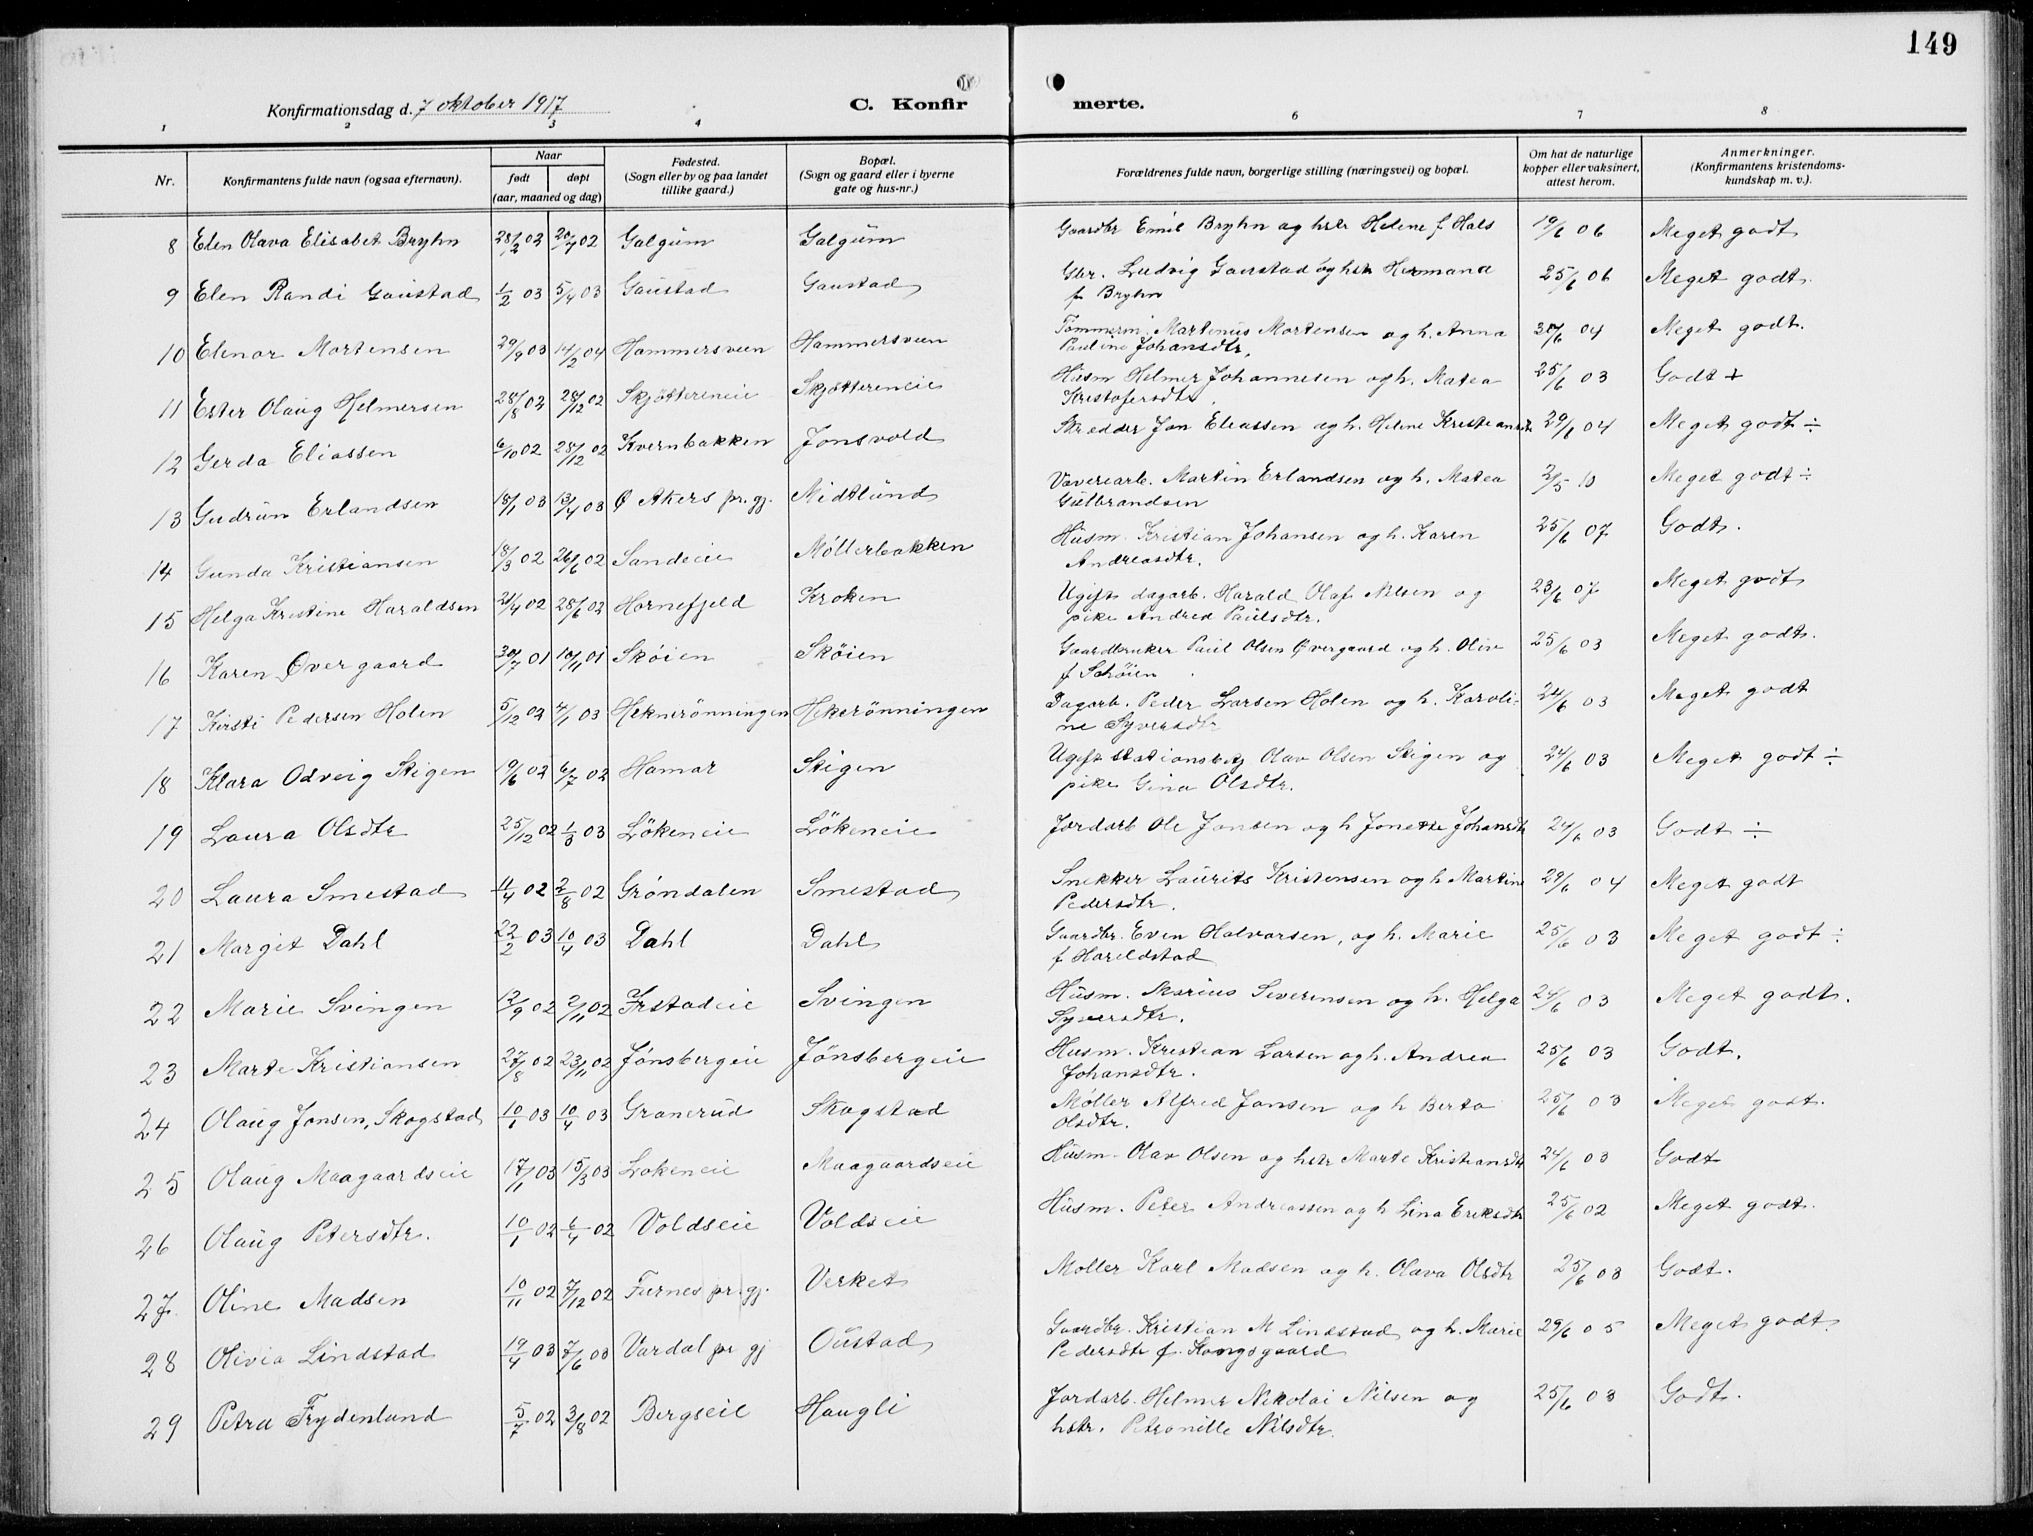 149
Konfirmationsdag d. 7 oktober 1917
C. Konfir
merte.
1 2 3 4 6 7 8
Nr. Konfirmantens fulde navn (ogsaa efternavn). Naar født døpt (aar, maaned og dag) Fødested. (Sogn eller by og paa landet tillike gaard.) Bopæl. (Sogn og gaard eller i byerne gate og hus-nr.) Forældrenes fulde navn, borgerlige stilling (næringsvei) og bopæl. Om hat de naturlige kopper eller vaksinert, attest herom. Anmerkninger. (Konfirmantens kristendoms-kundskap m. v.).
8 Elen Olava Elisabet Bryhn 28/2 02 20/4 02 Galgum Galgum Gaardbr Emil Bryhn og hstr Helene f Hals 19/6 06 Meget godt
9 Elen Randi Gaustad 1/2 03 5/4 03 Gaustad Gaustad Gbr. Ludvig Gaustad og hstr Hermana
f Bryhn 25/6 06 Meget godt.
10 Elenor Mortensen 29/9 03 14/2 04 Hammersveen Hammersveen Tømmerm. Martenus Mortensen og h. Anna
Pauline Johansdtr. 04 Meget godt.
11 Ester Olaug Helmersen 28/8 02 28/12 02 Skjøttereneie Skjøttereneie Husm Helmer Johannesen og h. Matea
Kristofersdtr. 25/6 03 Godt +
12 Gerda Eliassen 6/10 02 28/12 02 Kvernbakken Jonsvold Skrædder Jon Eliassen og h. Helene Kristiansdtr 29/6 04 Meget godt ÷
13 Gudrun Erlandsen 18/1 03 13/4 03 Ø Akers pr. gj. Midtlund Væverearb. Martin Erlandsen og h. Matea
Gulbrandsen 2/5 10 Meget godt ÷
14 Gunda Kristiansen 18/3 02 26/6 02 Sandeeie Møllerbakken Husm. Kristian Johansen og h. Karen
Andreasdtr. 25/6 07 Godt.
15 Helga Kristine Haraldsen 21/4 02 28/6 02 Hornefjeld Kroken Ugift dagarb. Harald Olaf Nilsen og
pike Andrea Paulsdtr. 23/6 07 Meget godt
16 Karen Øvergaard 30/7 01 10/11 01 Skøien Skøien Gaardbruker Paul Olsen Øvergaard og h. Oline
f Schøien 25/6 03 Meget godt.
17 Kirsti Pedersen Holen 5/12 02 4/1 03 Heknerønningen Hekerønningen Dagarb. Peder Larsen Holen og h. Karoli-
ne Syversdtr 24/6 03 Meget godt
18 Klara Odveig Stigen 19/6 02 6/7 02 Hamar Stigen Ugift stationsbetj Olav Olsen Stigen og
pike Gina Olsdtr. 24/6 03 Meget godt ÷
19 Laura Olsdtr 25/12 02 1/3 03 Løkeneie Løkeneie Jordarb Ole Jonsen og h Jonette Johansdtr 24/6 03 Godt ÷
20 Laura Smestad 11/4 02 3/8 02 Grøndalen Smestad Snekker Laurits Kristensen og h. Martine
Pedersdtr. 29/6 04 Meget godt
21 Margit Dahl 22/2 03 10/4 03 Dahl Dahl Gaardbr. Even Halvorsen, og h. Marie
f Hareldstad 25/6 03 Meget godt ÷
22 Marie Svingen 12/9 02 2/11 02 Irstadeie Svingen Husm. Marius Severinsen og h. Helga
Syversdtr. 24/6 03 Meget godt.
23 Marte Kristiansen 27/8 02 23/11 02 Jønsbergeie Jønsbergeie Husm. Kristian Larsen og h. Andrea
Johansdtr. 25/6 03 Godt.
24 Olaug Jonsen, Skogstad 10/1 03 10/4 03 Granerud Skogstad Møller Alfred Jonsen og h Berta
Olsdtr. 25/6 03 Meget godt.
25 Olaug Maagaardseie 17/11 03 15/3 03 Løkeneie Maagaardseie Husm. Olav Olsen og hstr Marte Kristiansdtr 24/6 03 Godt
26 Olaug Petersdtr. 10/1 02 6/4 02 Voldseie Voldseie Husm. Peter Andreassen og h Lina Eriksdtr 25/6 02 Meget godt.
27 Oline Madsen 10/11 02 7/12 02 Furnes pr. gj. Verket Møller Karl Madsen og h. Olava Olsdtr 25/6 03 Godt.
28 Olivia Lindstad 19/4 03 7/6 03 Vardal pr gj Oustad Gaardbr. Kristian M Lindstad og h. Marie
Pedersdtr f. Kongsgaard 29/6 05 Meget godt.
29 Petra Frydenlund 5/7 02 3/8 02 Bergseie Haugli Jordarb. Helmer Nikolai Nilsen og
hstr. Petronille Nilsdtr. 25/6 03 Godt.